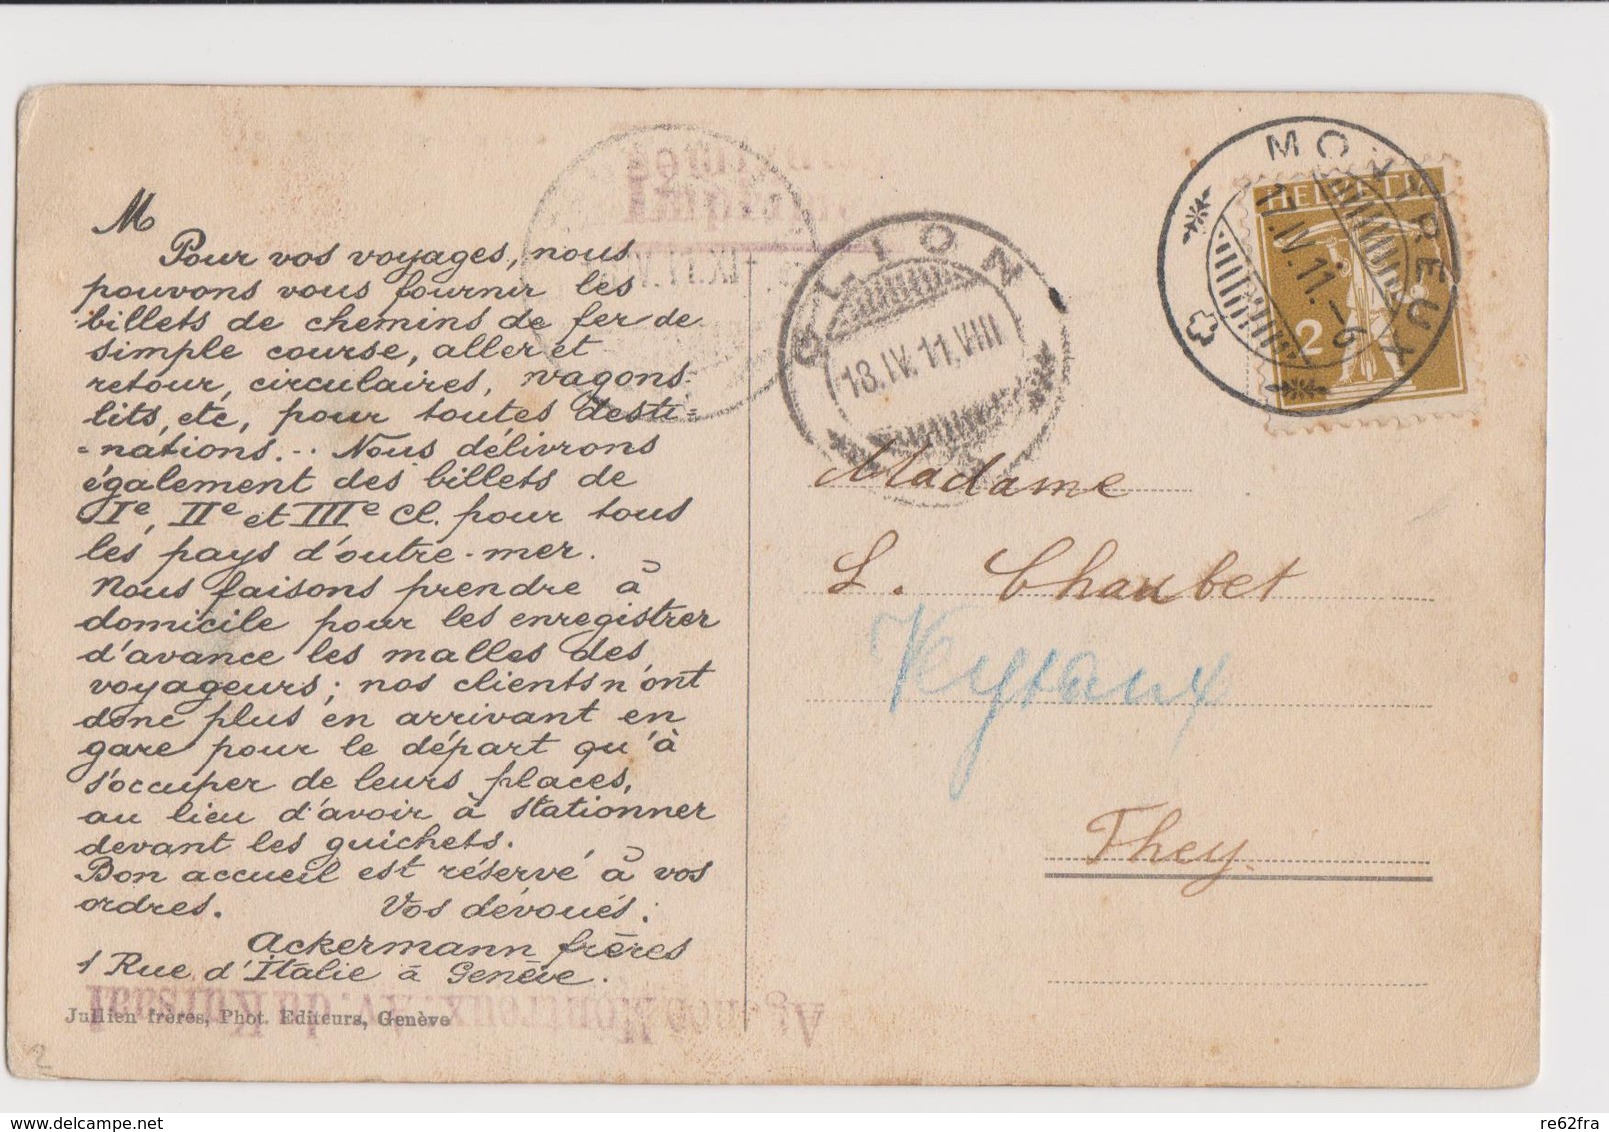 M
Pour vos voyages, nous
pouvons vous fournir les
billets de chemins de fer de
simple course, aller et
retour, circulaires, wagons-
lits, etc, pour toutes desti=
=nations... Nous délivrons
également des billets de
Ie, IIe et IIIe Cl. pour tous
les pays d'outre-mer.
Nous faisons prendre à
domicile pour les enregistrer
d'avance les malles des
voyageurs; nos clients n'ont
donc plus en arrivant en
gare pour le départ qu'à
s'occuper de leurs places,
au lieu d'avoir à stationner
devant les guichets.
Bon accueil est réservé à vos
ordres. Vos dévoués:
Ackermann frères
1 Rue d'Italie à Genève.
Jullien frères, Phot. Editeurs, Genève
2
GLION
18.IV.11.VIII
MONTREUX
17.IV.11.-6
HELVETIA
2
Madame
L. Chaubet
Veytaux
They.
Agence Montreux: Av. du Kursaal
delcampe.net
re62fra